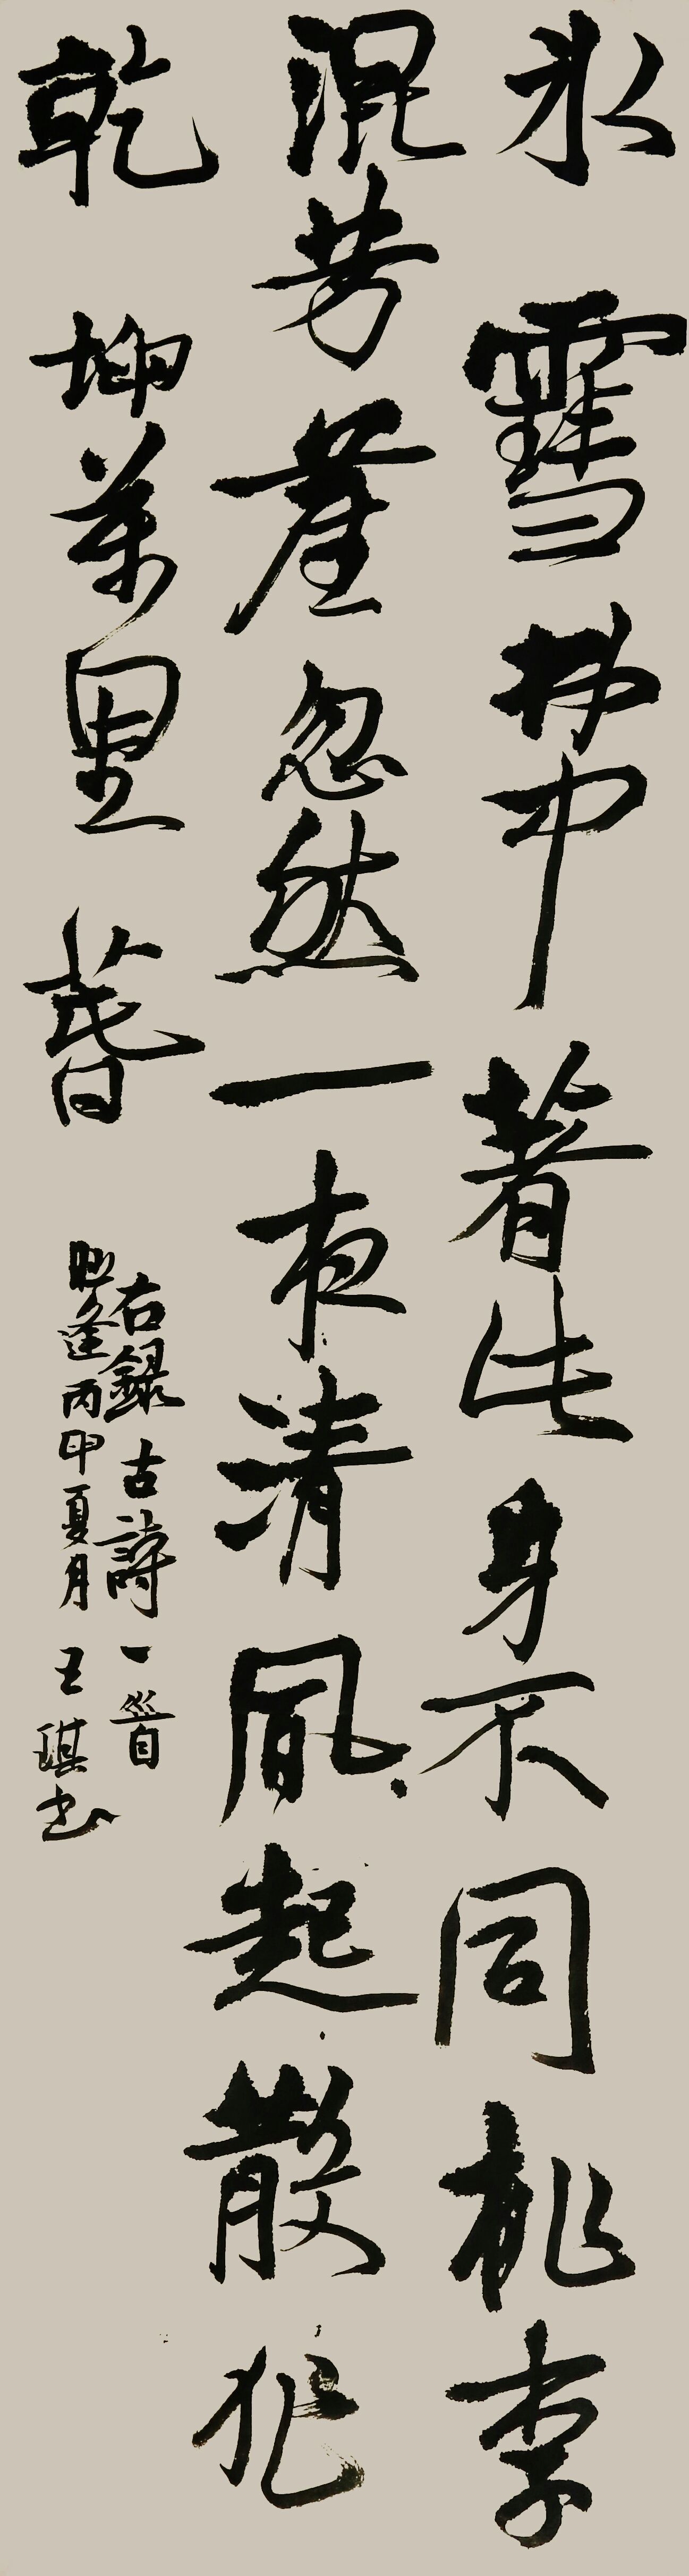 氷雪林中著此身不同桃李
混芳塵忽然一夜清風起散作
乾坤萬里春
右録古詩一首
時逢丙申夏月王琪书